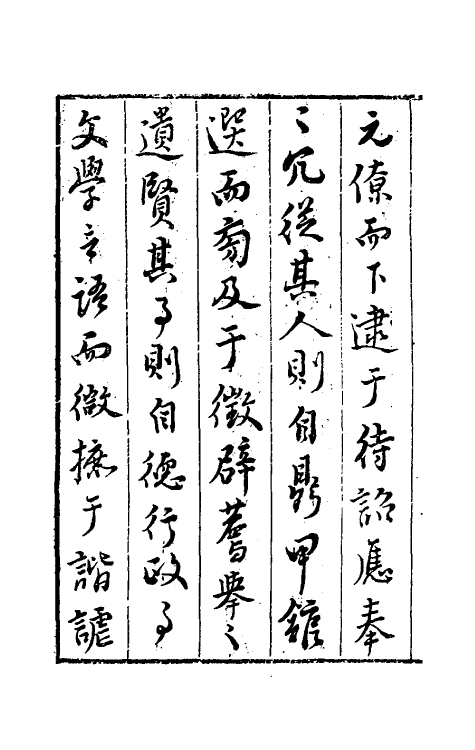 元僚而下逮于待詔應奉
之冗從其人則自鼎甲館
選而旁及于徵辟薦舉之
遺賢其事則自德行政事
文學言語而微摭于諧謔